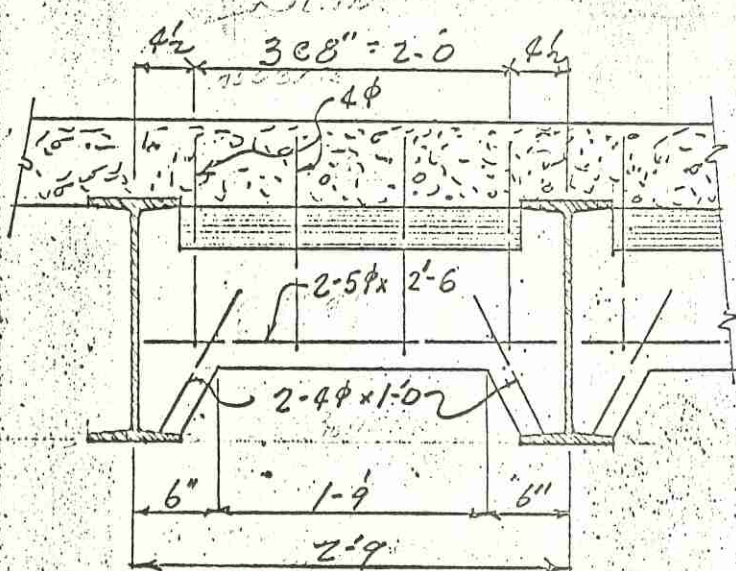 4½ 3@8" = 2-0 4½
4ϕ
2-5ϕ x 2'-6
2-4ϕ x 1'-0
6" 1-9 6"
2'-9